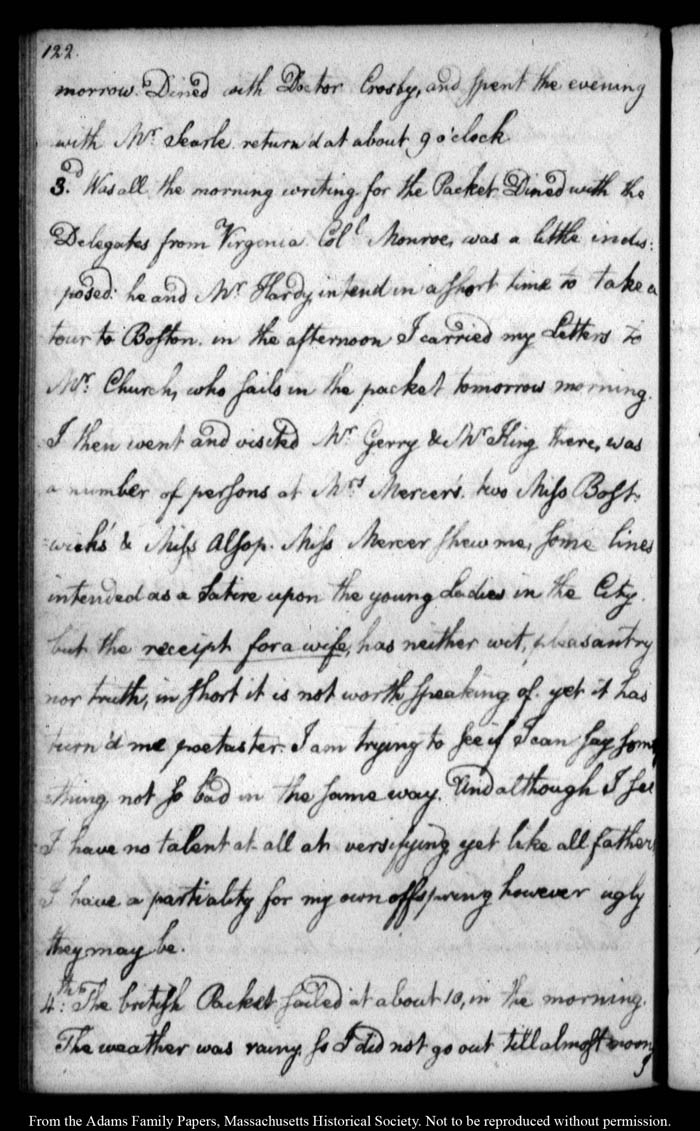 122.
morrow. Dined with Doctor Crosby, and spent the evening
with Mr. Searle. return'd at about 9 o'clock
3.d Was all the morning writing for the Packet. Dined with the
Delegates from Virginia. Coll. Monroe, was a little indis:
posed: he and Mr. Hardy intend in a short time to take a
tour to Boston. in the afternoon I carried my Letters to
Mr. Church, who sails in the packet tomorrow morning.
I then went and visited Mr. Gerry & Mr. King there, was
a number of persons at Mrs. Mercer's. two Miss Bost-
wick's & Miss Alsop. Miss Mercer shew me, some lines
intended as a Satire upon the young Ladies in the City.
but the receipt for a wife, has neither wit, pleasantry
nor truth, in short it is not worth speaking of. yet it has
turn'd me poetaster. I am trying to see if I can say some
thing not so bad in the same way. And although I see
I have no talent at all at versifying, yet like all fathers
I have a partiality for my own offspring however ugly
they may be.
4.th The british Packet sailed at about 10, in the morning.
The weather was rainy so I did not go out till almost noon,
From the Adams Family Papers, Massachusetts Historical Society. Not to be reproduced without permission.